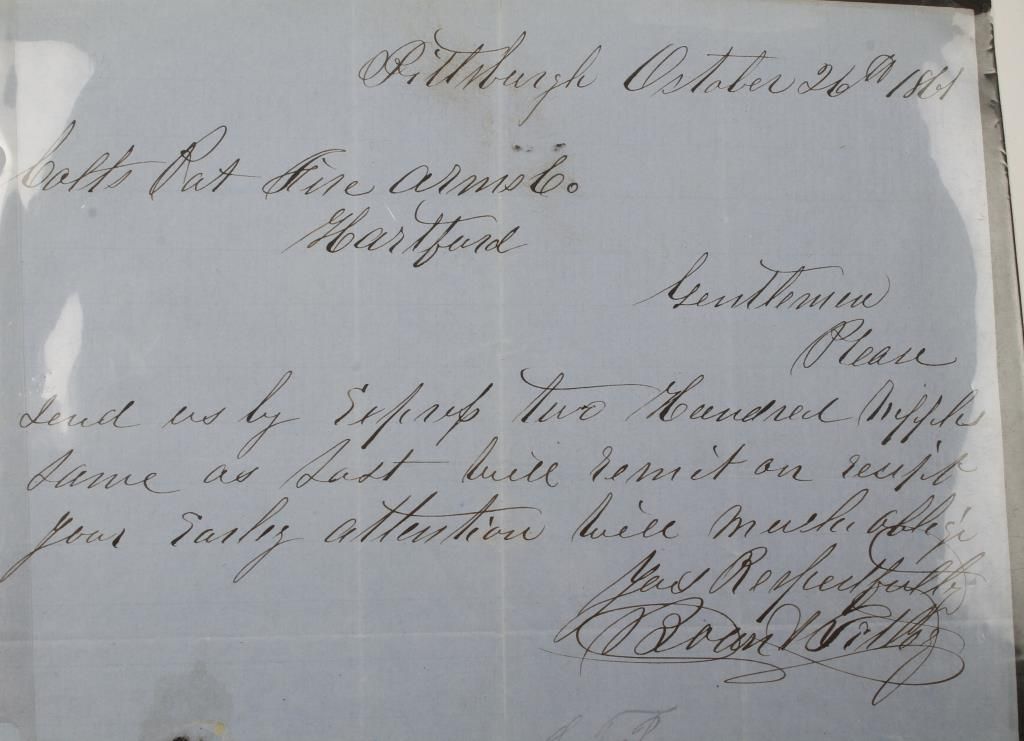 Pittsburgh October 26th 1861
Colts Pat Fire Arms Co.
Hartford
Gentlemen
Please
send us by Express two Hundred Nipples
same as last will remit on
your Early attention will much oblige
Respectfully